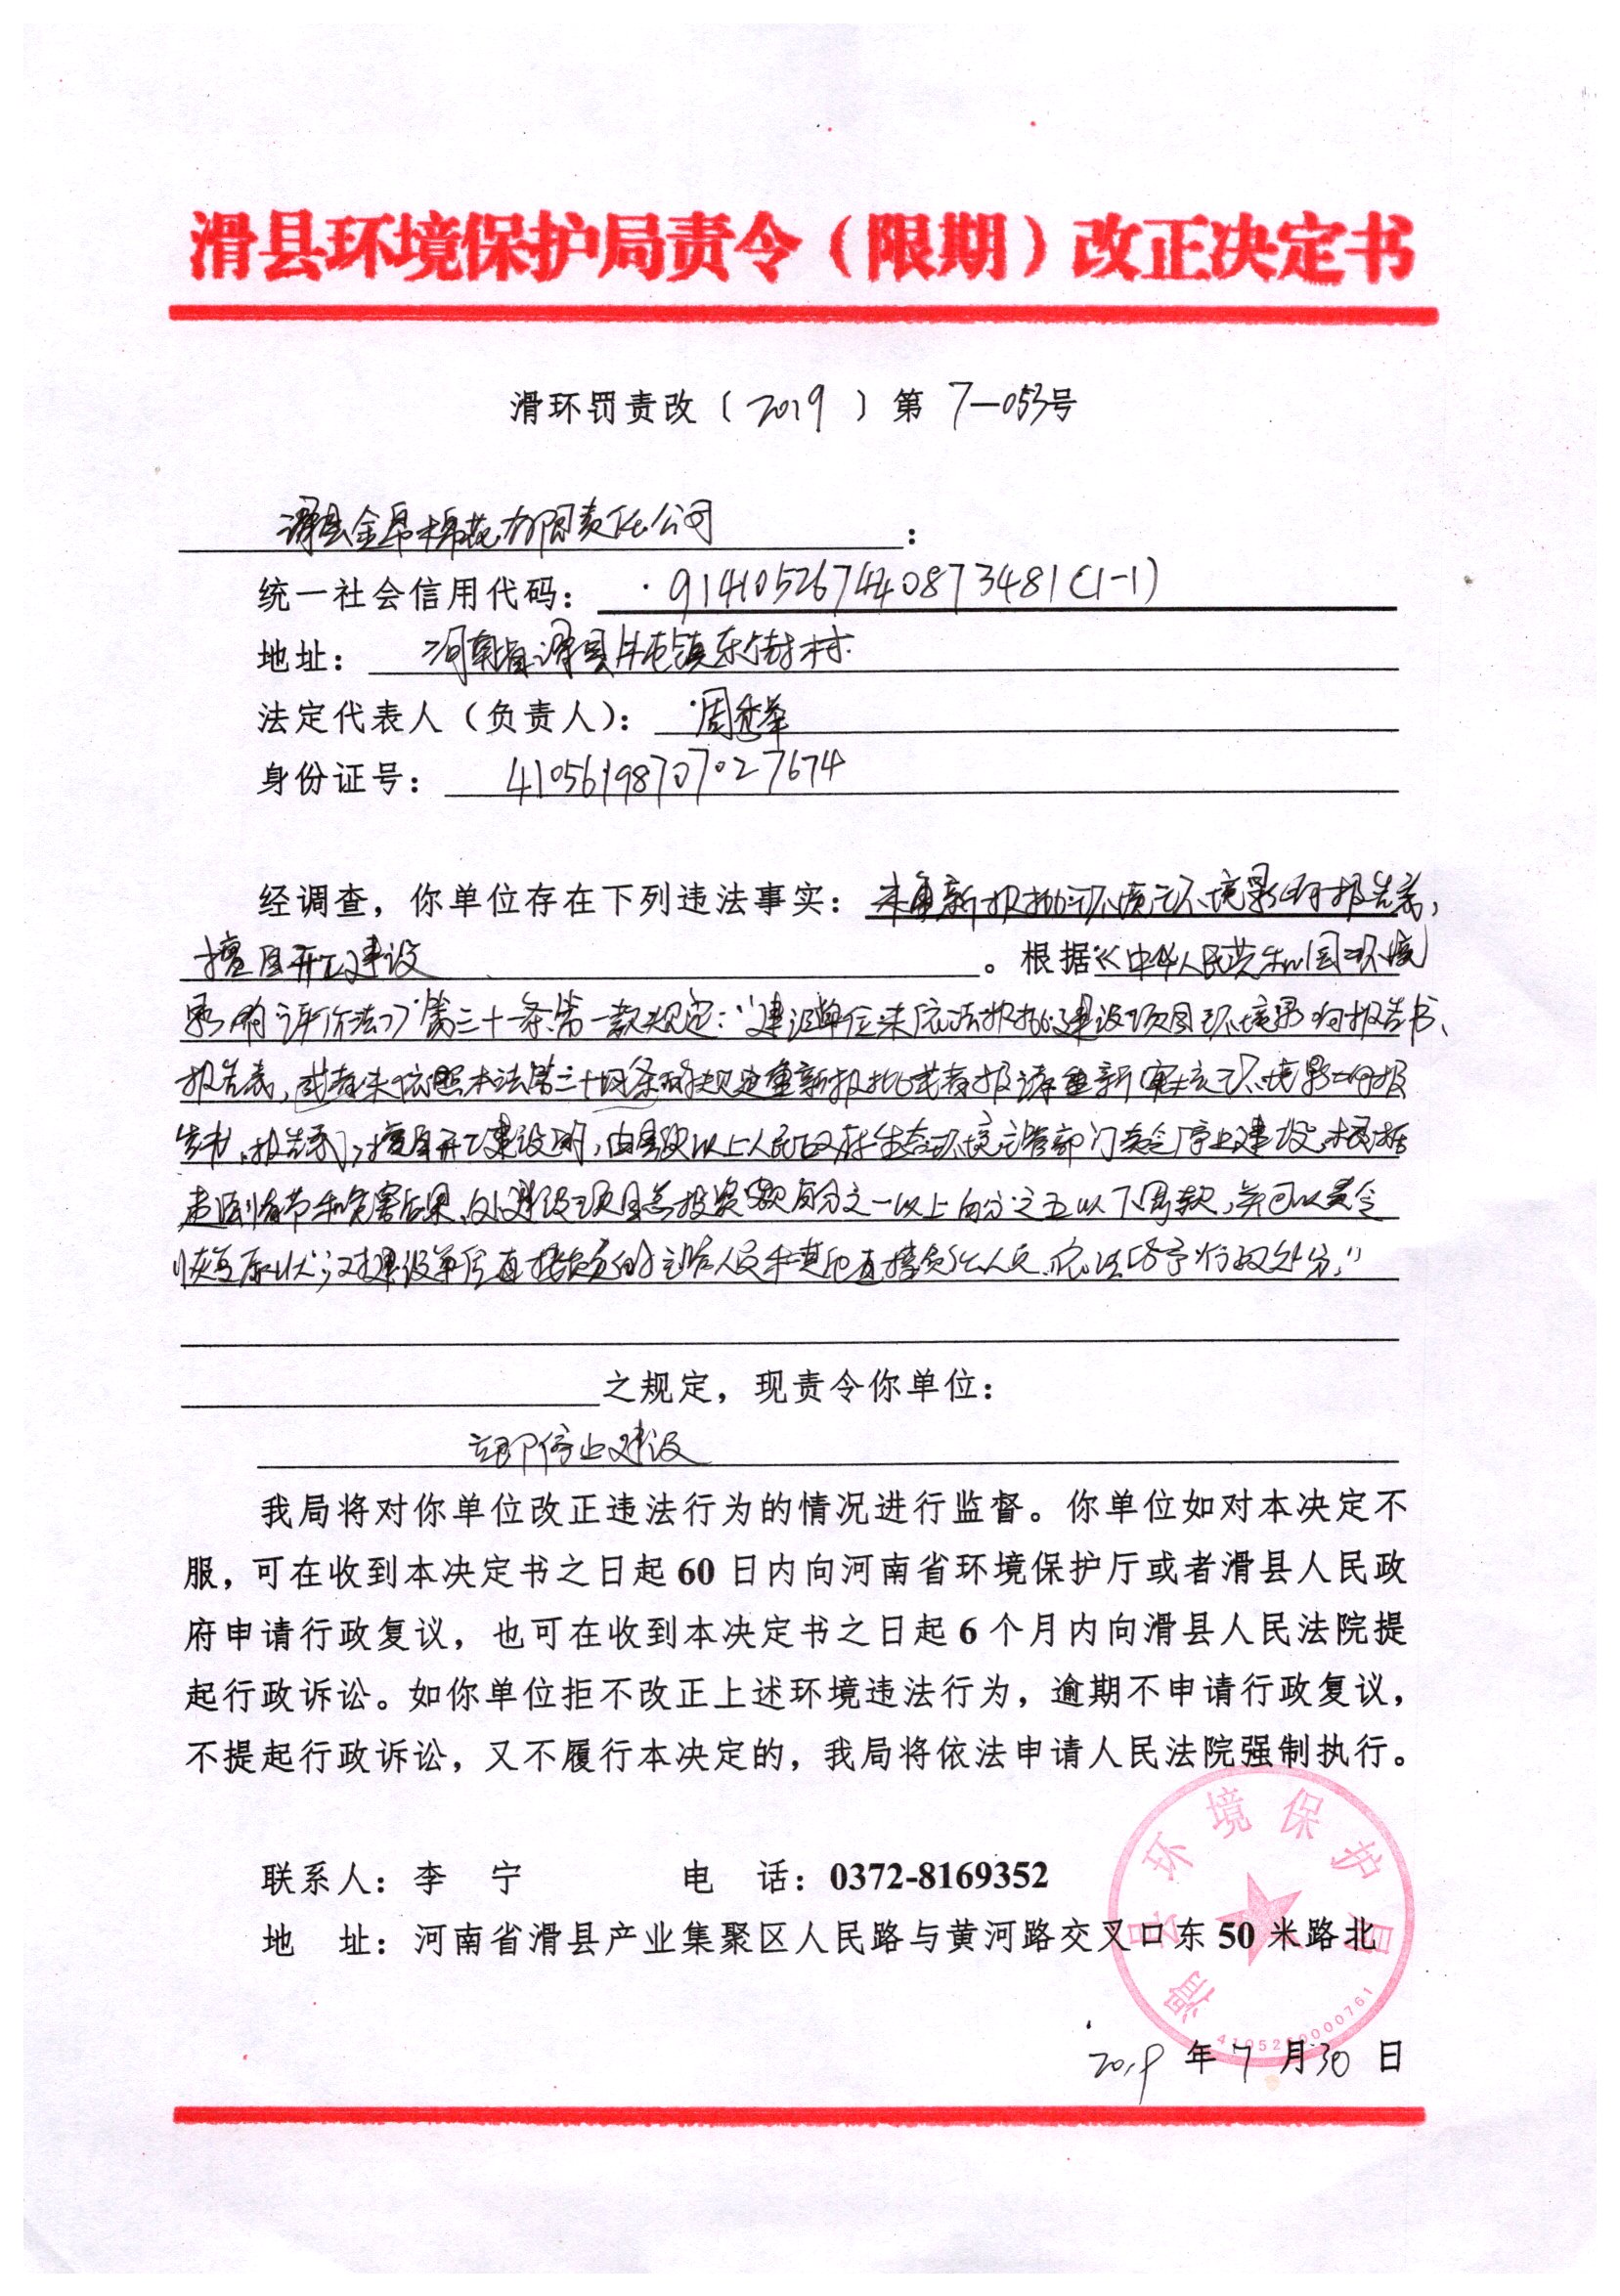 滑县环境保护局责令（限期）改正决定书
滑环罚责改〔2019〕第7—053号
滑县金昂棉花有限责任公司：
统一社会信用代码：914105267440873481(1-1)
地址：河南省滑县牛屯镇东街村
法定代表人（负责人）：周
身份证号：41056198707027674
经调查，你单位存在下列违法事实：未重新报批环境环境影响报告表，
擅自开工建设。根据《中华人民共和国环境
影响评价法》第三十一条第一款规定：“建设单位未依法报批建设项目环境影响报告书、
报告表，或者未依照本法第二十四条的规定重新报批或者报请重新审核环境影响报
告书、报告表，擅自开工建设的，由县级以上人民政府生态环境主管部门责令停止建设，根据
违法情节和危害后果，处建设项目总投资额百分之一以上百分之五以下罚款，并可以责令
恢复原状；对建设单位直接负责的主管人员和其他直接责任人员，依法给予行政处分。”
之规定，现责令你单位：
立即停止建设
我局将对你单位改正违法行为的情况进行监督。你单位如对本决定不
服，可在收到本决定书之日起60日内向河南省环境保护厅或者滑县人民政
府申请行政复议，也可在收到本决定书之日起6个月内向滑县人民法院提
起行政诉讼。如你单位拒不改正上述环境违法行为，逾期不申请行政复议，
不提起行政诉讼，又不履行本决定的，我局将依法申请人民法院强制执行。
联系人：李 宁 电 话：0372-8169352
地 址：河南省滑县产业集聚区人民路与黄河路交叉口东50米路北
滑县环境保护局
2019年7月30日